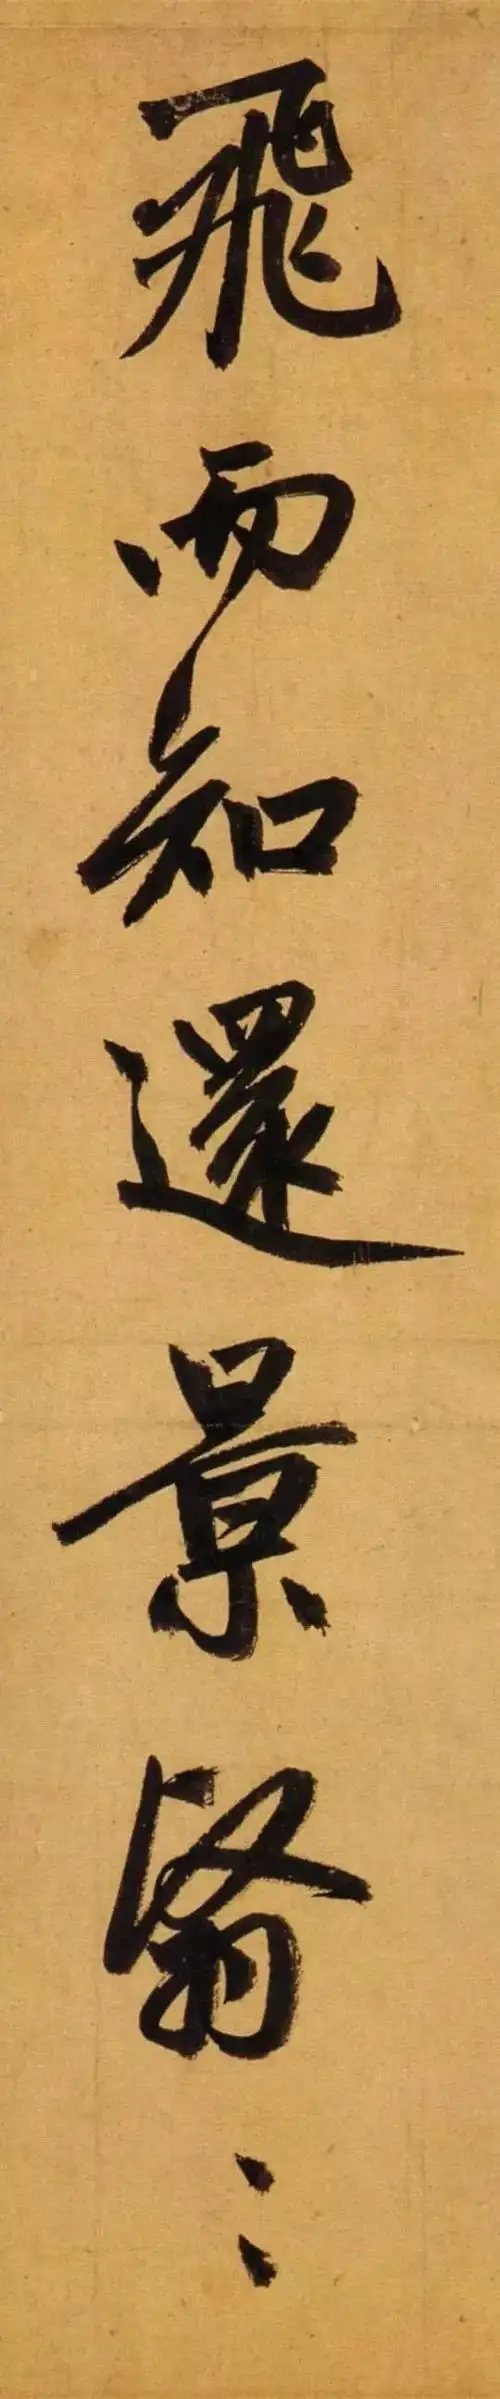 飛而知還景翳〻